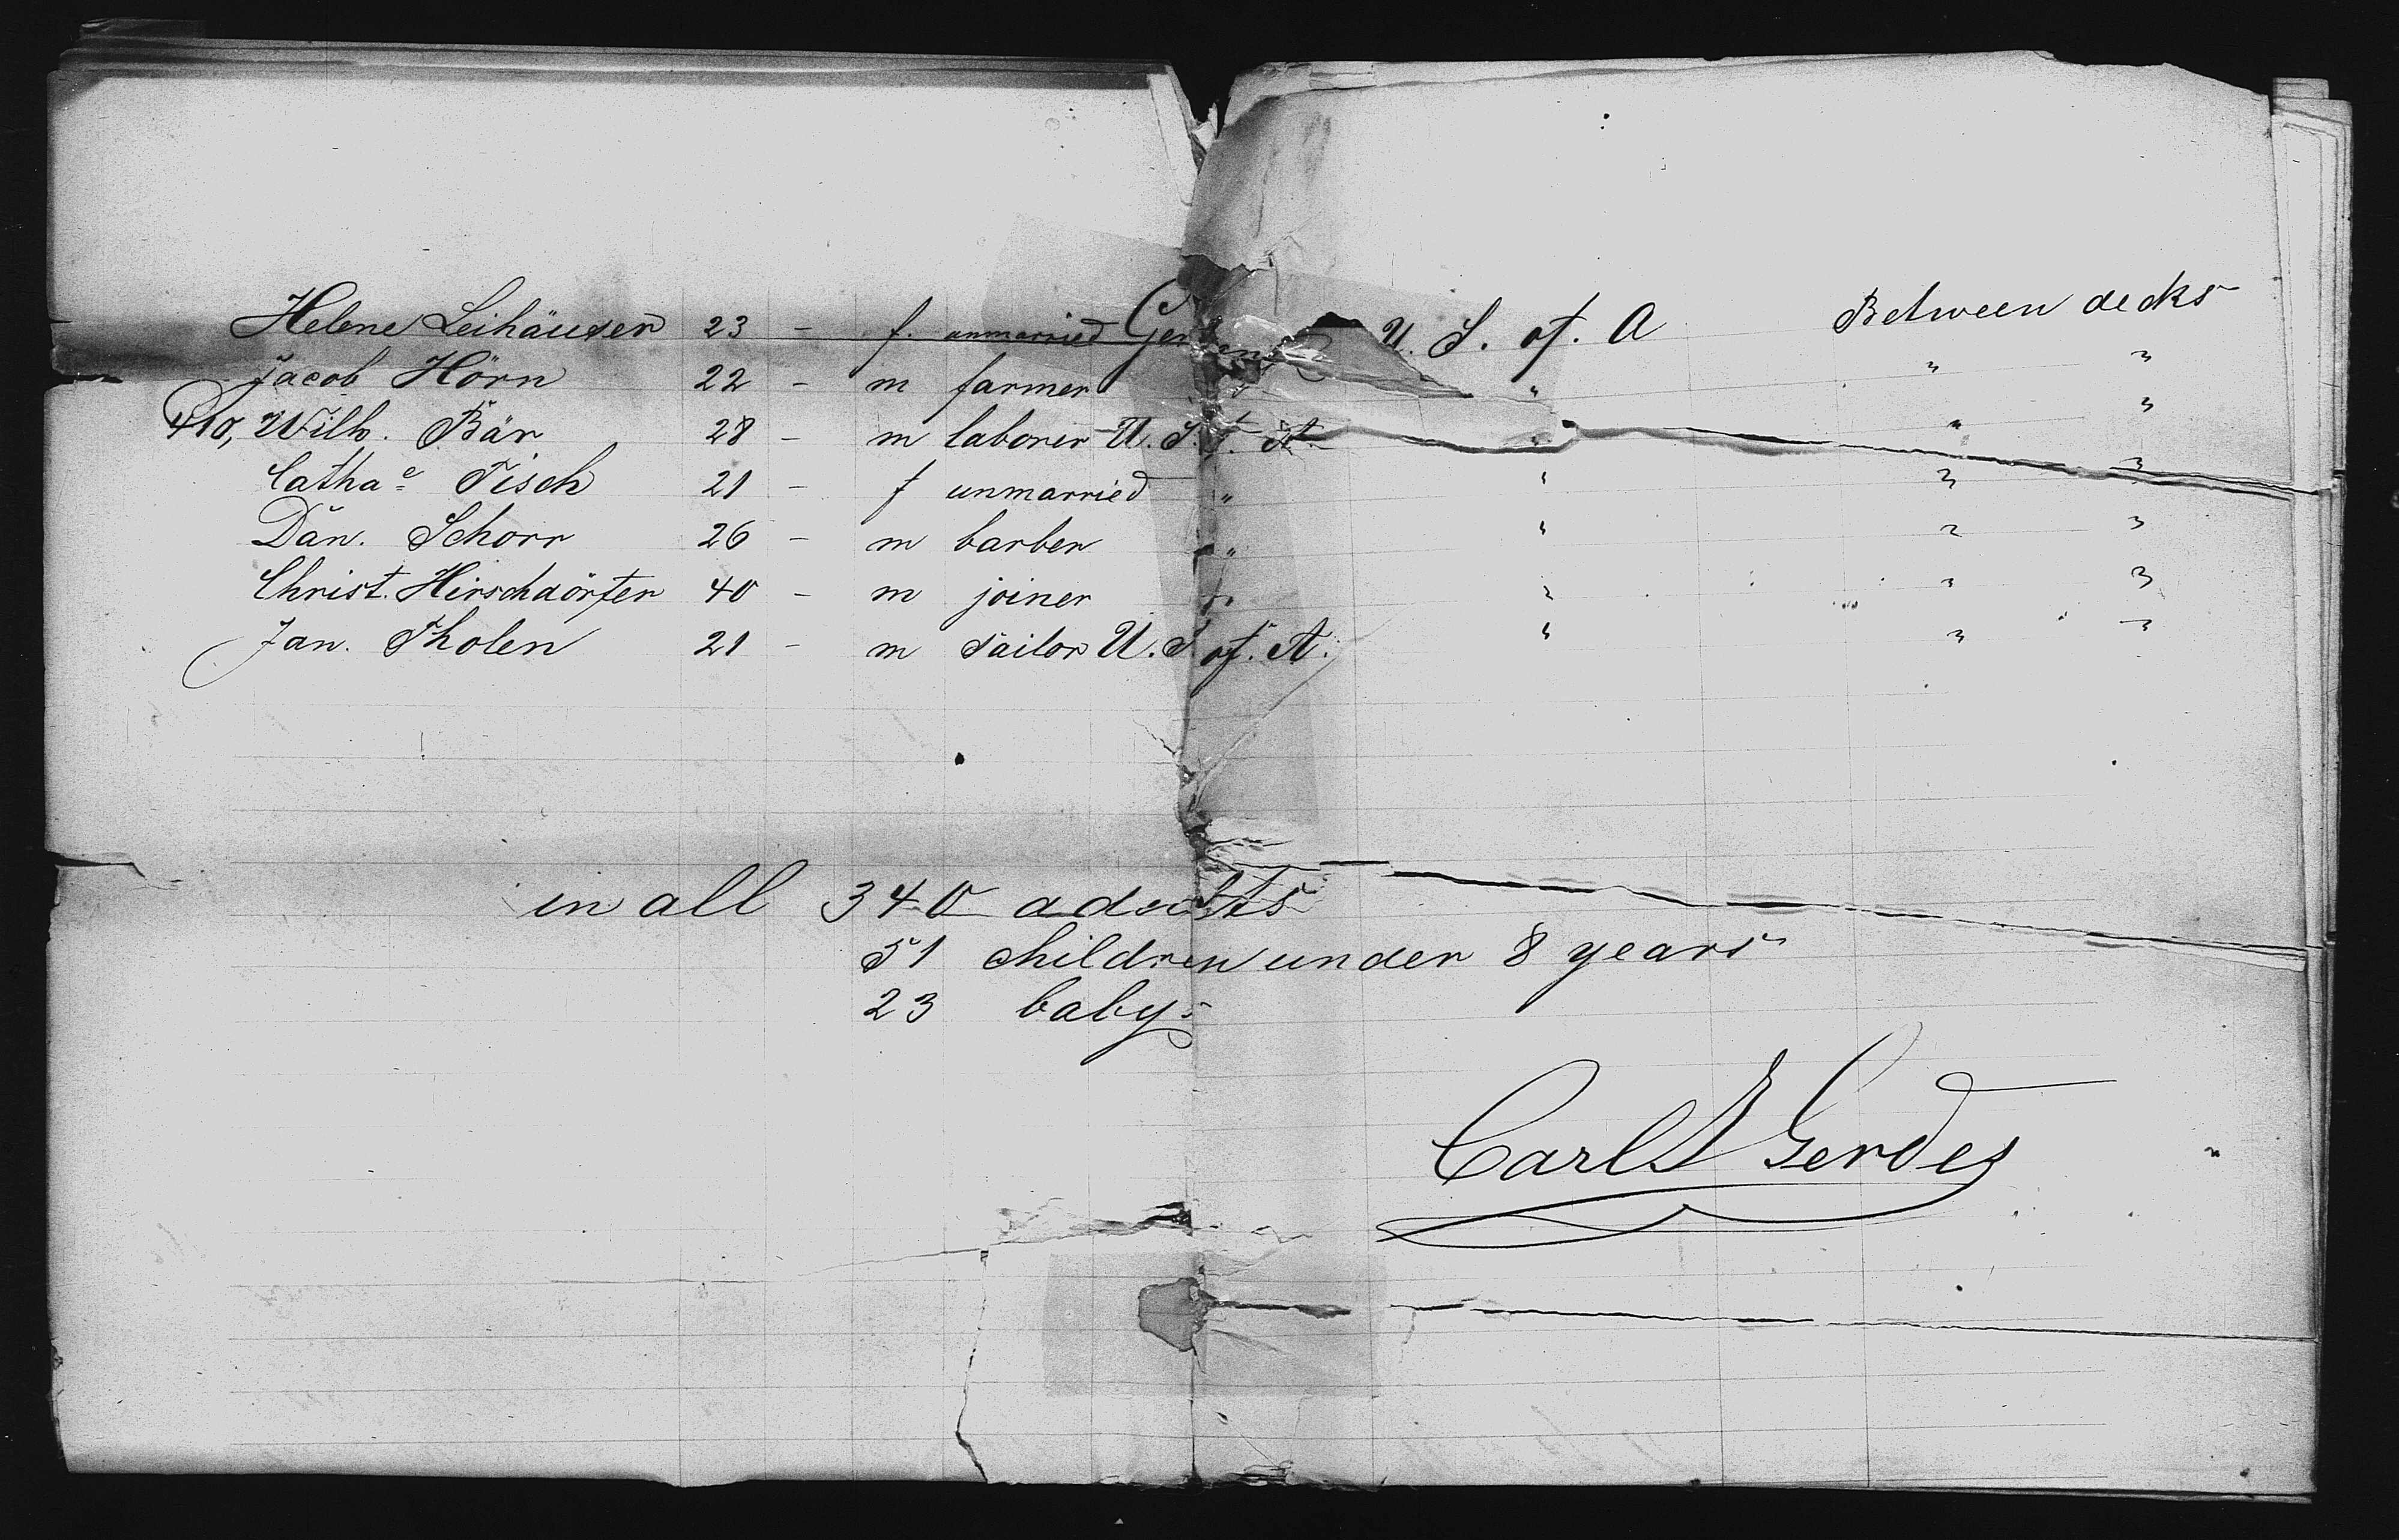 Helene Leihäuser 23 - f. unmarried Germany U. S. of. A Between decks
Jacob Hörn 22 - m farmer " " " "
410, Wilh. Bär 28 - m laborer U. S. f. A. " " "
Cathae Fisch 21 - f unmarried " " " "
Dan. Schorr 26 - m barber " " " "
Christ. Hirschdörfer 40 - m joiner " " " "
Jan. Tholen 21 - m sailor U. S. of. A. " " "
in all 340 adultes
51 children under 8 years
23 babys
Carl Gerdes